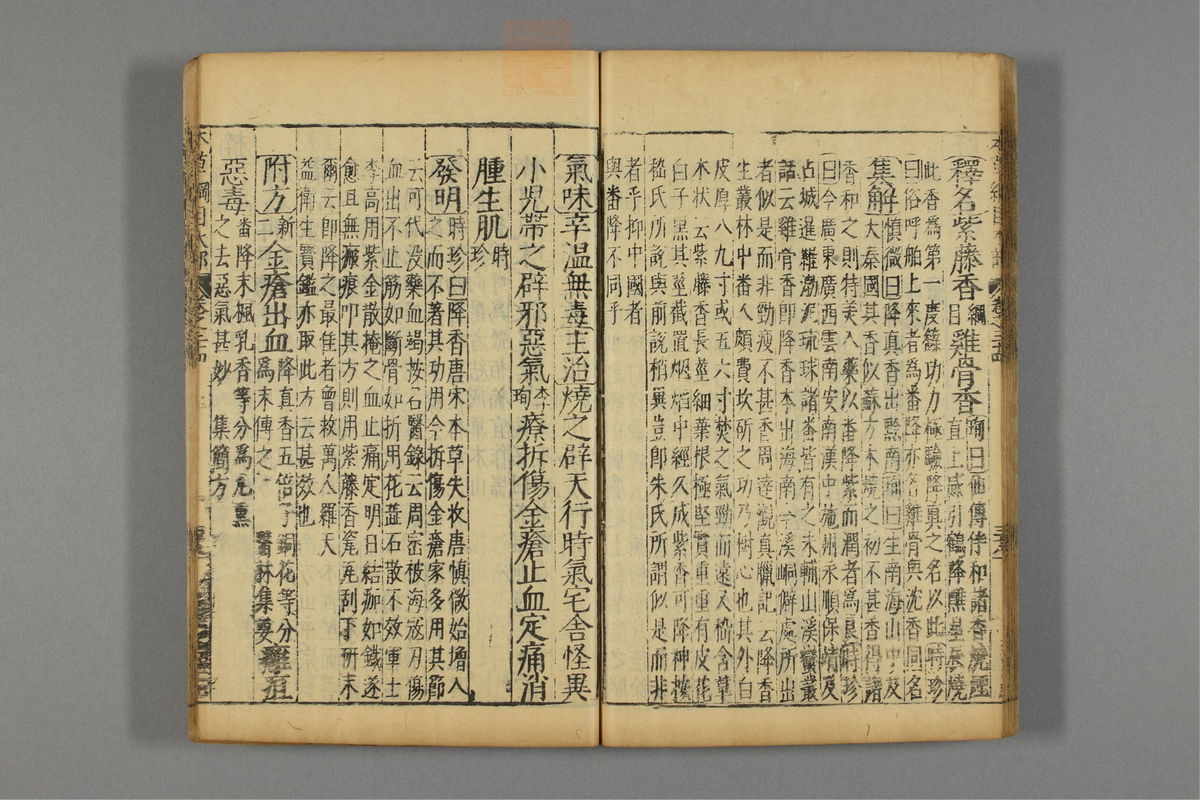 釋名紫藤香綱目雞骨香珣曰仙傳伴和諸香燒烟直上感引鶴降醮星辰燒
此香爲第一度籙功力極驗降真之名以此時珍
曰俗呼舶上來者爲番降亦名雞骨與沈香同名
集解慎微曰降真香出黔南珣曰生南海山中及
大秦國其香似蘇方木燒之初不甚香得諸
香和之則特美入藥以番降紫而潤者爲良時珍
曰今廣東廣西雲南安南漢中施州永順保靖及
占城暹羅渤泥琉球諸番皆有之朱輔山溪蠻叢
話云雞骨香即降香本出海南今溪峒僻處所出
者似是而非勁瘦不甚香周達觀真臘記云降香
生叢林中番人頗費坎斫之功乃樹心也其外白
皮厚八九寸或五六寸焚之氣勁而遠又嵇含草
木狀云紫藤香長莖細葉根極堅實重重有皮花
白子黑其莖截置烟焰中經久成紫香可降神按
嵇氏所說與前說稍異豈即朱氏所謂似是而非
者乎抑中國者
與番降不同乎
氣味辛溫無毒主治燒之辟天行時氣宅舍怪異
小兒帶之辟邪惡氣李珣療折傷金瘡止血定痛消
腫生肌時珍
發明時珍曰降香唐宋本草失收唐慎微始增入
之而不著其功用今折傷金瘡家多用其節
云可代没藥血竭按名醫錄云周崇被海寇刃傷
血出不止筋如斷骨如折用花蕊石散不效軍士
李高用紫金散掩之血止痛定明日結痂如鐵遂
愈且無瘢痕叩其方則用紫藤香瓷瓦刮下研末
爾云即降之最佳者曾救萬人羅天
益衛生寶鑑亦取此方云甚效也
附方新二金瘡出血降真香五倍子銅花等分爲末傅之醫林集要癰疽
惡毒番降末楓乳香等分爲丸熏之去惡氣甚妙集簡方